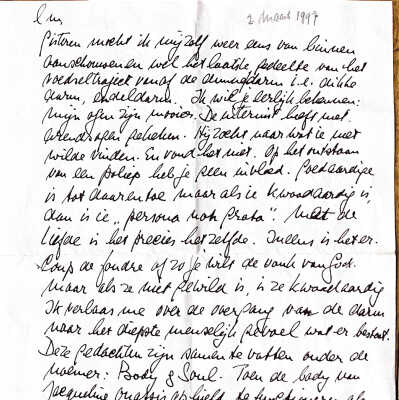 Lm 2 maart 1997
Gisteren mocht ik mijzelf weer eens van binnen
aanschouwen en wel het laatste gedeelte van het
voedseltraject vanaf de dunne darm i.e. dikke
darm, endeldarm. Ik wil je eerlijk bekennen:
mijn ogen zijn mooier. De internist heeft met
arendsogen gekeken. Hij zocht naar wat ie niet
wilde vinden. En vond het niet. Op het ontstaan
van een poliep heb je geen invloed. Goedaardige
is tot daaraan toe maar als ie kwaadaardig is,
dan is ie "persona non grata". Met de
liefde is het precies hetzelfde. Ineens is het er.
Coup de foudre of zo je wilt de vonk van God.
Maar als ze niet gewild is, is ze kwaadaardig
Ik verbaas me over de overgang van de darm
naar het diepste menselijk gevoel wat er bestaat.
Deze gedachten zijn samen te vatten onder de
noemer: Body & Soul. Toen de body van
Jacqueline Onassis ophield te functioneren als